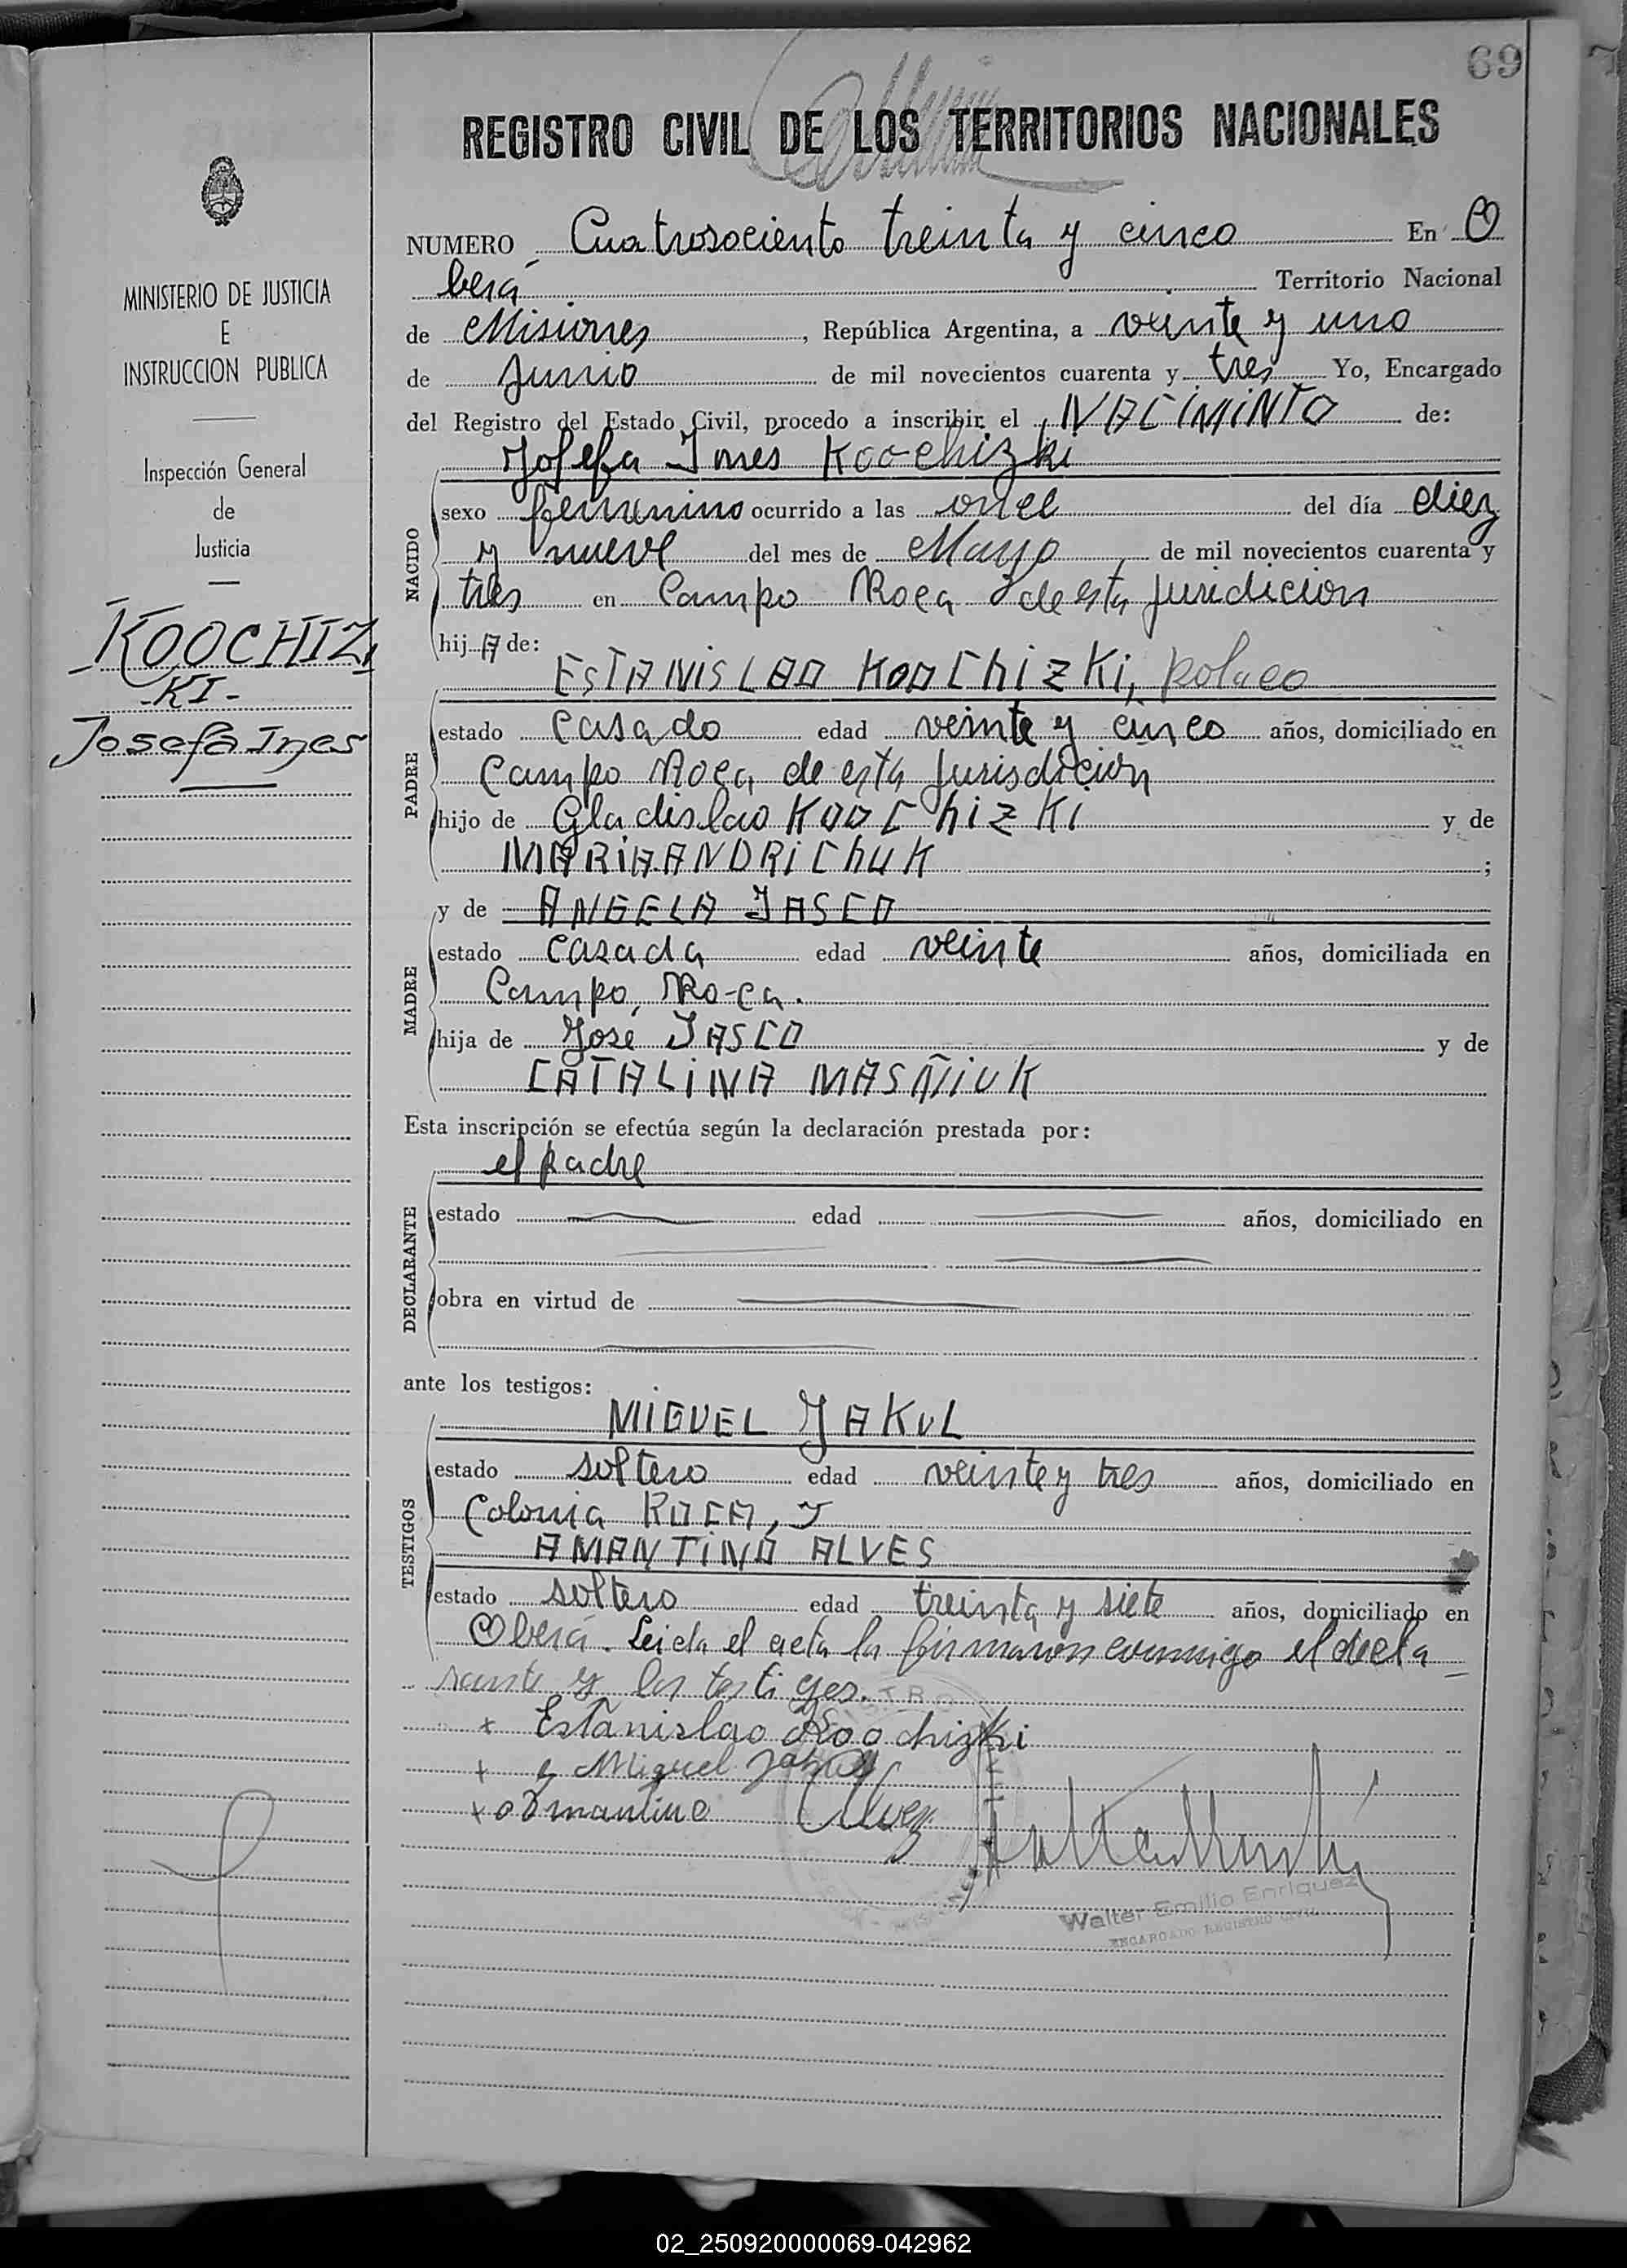 69
REGISTRO CIVIL DE LOS TERRITORIOS NACIONALES
NUMERO Cuatrosociento treinta y cinco En O
berá Territorio Nacional
de Misiones, República Argentina, a veinte y uno
de Junio de mil novecientos cuarenta y tres Yo, Encargado
del Registro del Estado Civil, procedo a inscribir el NACIMINTO de:
Josefa Ines Koochizki
NACIDO
sexo femenino ocurrido a las once del día diez
y nueve del mes de Mayo de mil novecientos cuarenta y
tres en Campo Roca de esta juridicion
hij A de:
ESTANISLAO KOOChiZKi, polaco
PADRE
estado casado edad veinte y cinco años, domiciliado en
Campo Roca de esta Jurisdicion
hijo de Gladislao KOOChiZKi y de
MARIA ANDRiChuK ;
y de ANGELA JASCO
MADRE
estado casada edad veinte años, domiciliada en
Campo Ro-ca.
hija de José JASCO y de
CATALiNA MASÑiUK
Esta inscripción se efectúa según la declaración prestada por:
el padre
DECLARANTE
estado edad años, domiciliado en
obra en virtud de
ante los testigos:
MIGUEL JAKUL
TESTIGOS
estado soltero edad veinte y tres años, domiciliado en
Colonia ROCA, Y
AMANTiNO ALVES
estado soltero edad treinta y siete años, domiciliado en
Oberá. Leida el acta la firmaron conmigo el decla
rante y los testigos.
x Estanislao Koochizki
x Miguel
x Amantino Alves
Walter Emilio Enriquez
ENCARGADO REGISTRO CIVIL
MINISTERIO DE JUSTICIA
E
INSTRUCCION PUBLICA
Inspección General
de
Justicia
KOOCHIZ
-KI-
Josefa Ines
02_250920000069-042962